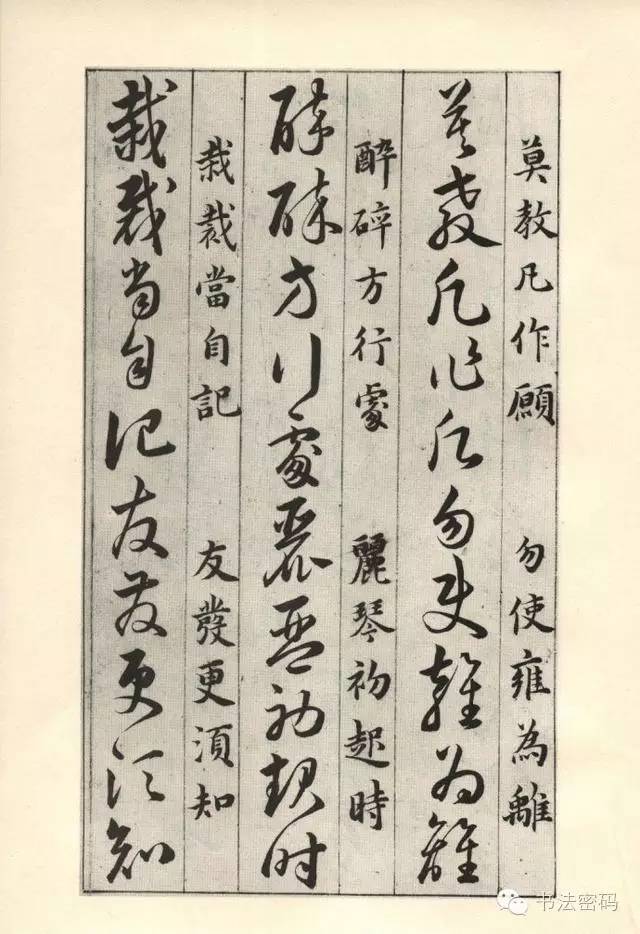 莫教凡作願 勿使雍為離
莫教凡作願勿使雍為離
醉碎方行處 麗琴初起時
醉碎方行處麗琴初起時
栽裁當自記 友發更湏知
栽裁當自記友發更須知
书法密码